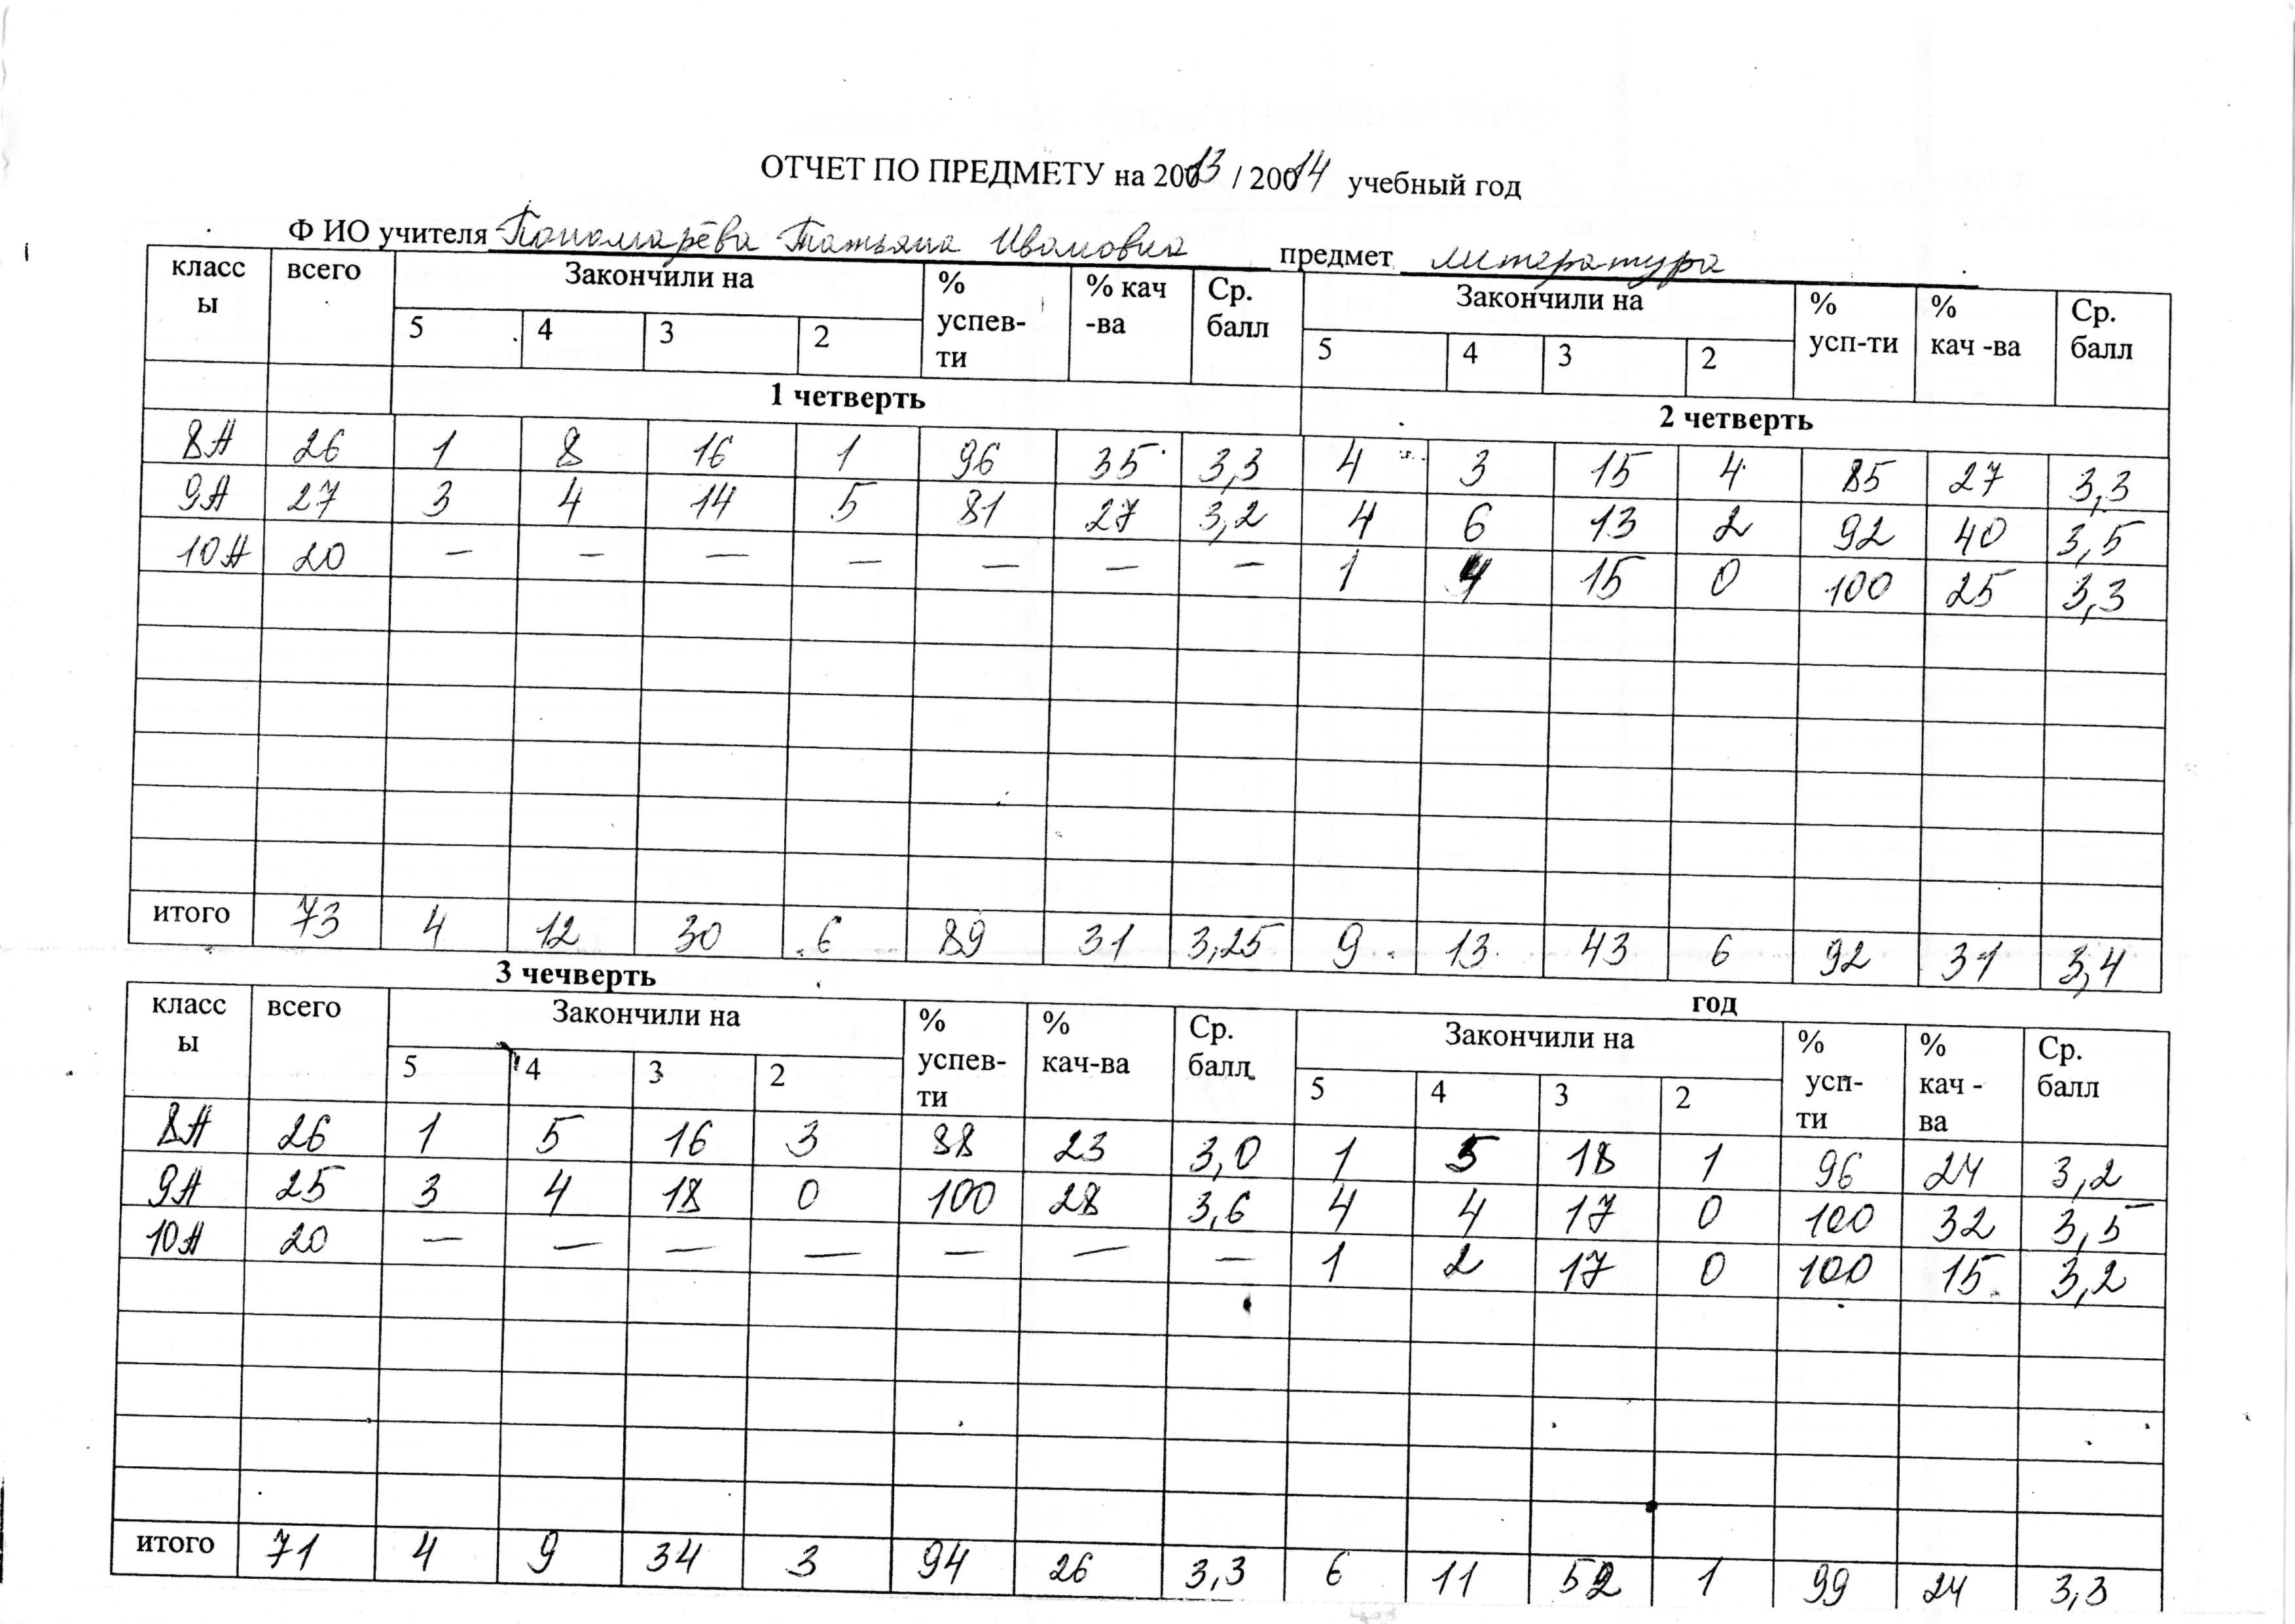 ОТЧЕТ ПО ПРЕДМЕТУ на 20013 / 20014 учебный год
Ф ИО учителя Пономарёва Татьяна Ивановна предмет литература
класс ы всего Закончили на % успев-ти % кач -ва Ср. балл Закончили на % усп-ти % кач -ва Ср. балл
5 4 3 2 5 4 3 2
1 четверть 2 четверть
8А 26 1 8 16 1 96 35 3,3 4 3 15 4 85 27 3,3
9А 27 3 4 14 5 81 27 3,2 4 6 13 2 92 40 3,5
10А 20 — — — — — — — 1 4 15 0 100 25 3,3
итого 73 4 12 30 6 89 31 3,25 9 13 43 6 92 31 3,4
3 чечверть год
класс ы всего Закончили на % успев-ти % кач-ва Ср. балл Закончили на % усп-ти % кач - ва Ср. балл
5 4 3 2 5 4 3 2
8А 26 1 5 16 3 88 23 3,0 1 5 18 1 96 24 3,2
9А 25 3 4 18 0 100 28 3,6 4 4 17 0 100 32 3,5
10А 20 — — — — — — — 1 2 17 0 100 15 3,2
итого 71 4 9 34 3 94 26 3,3 6 11 52 1 99 24 3,3